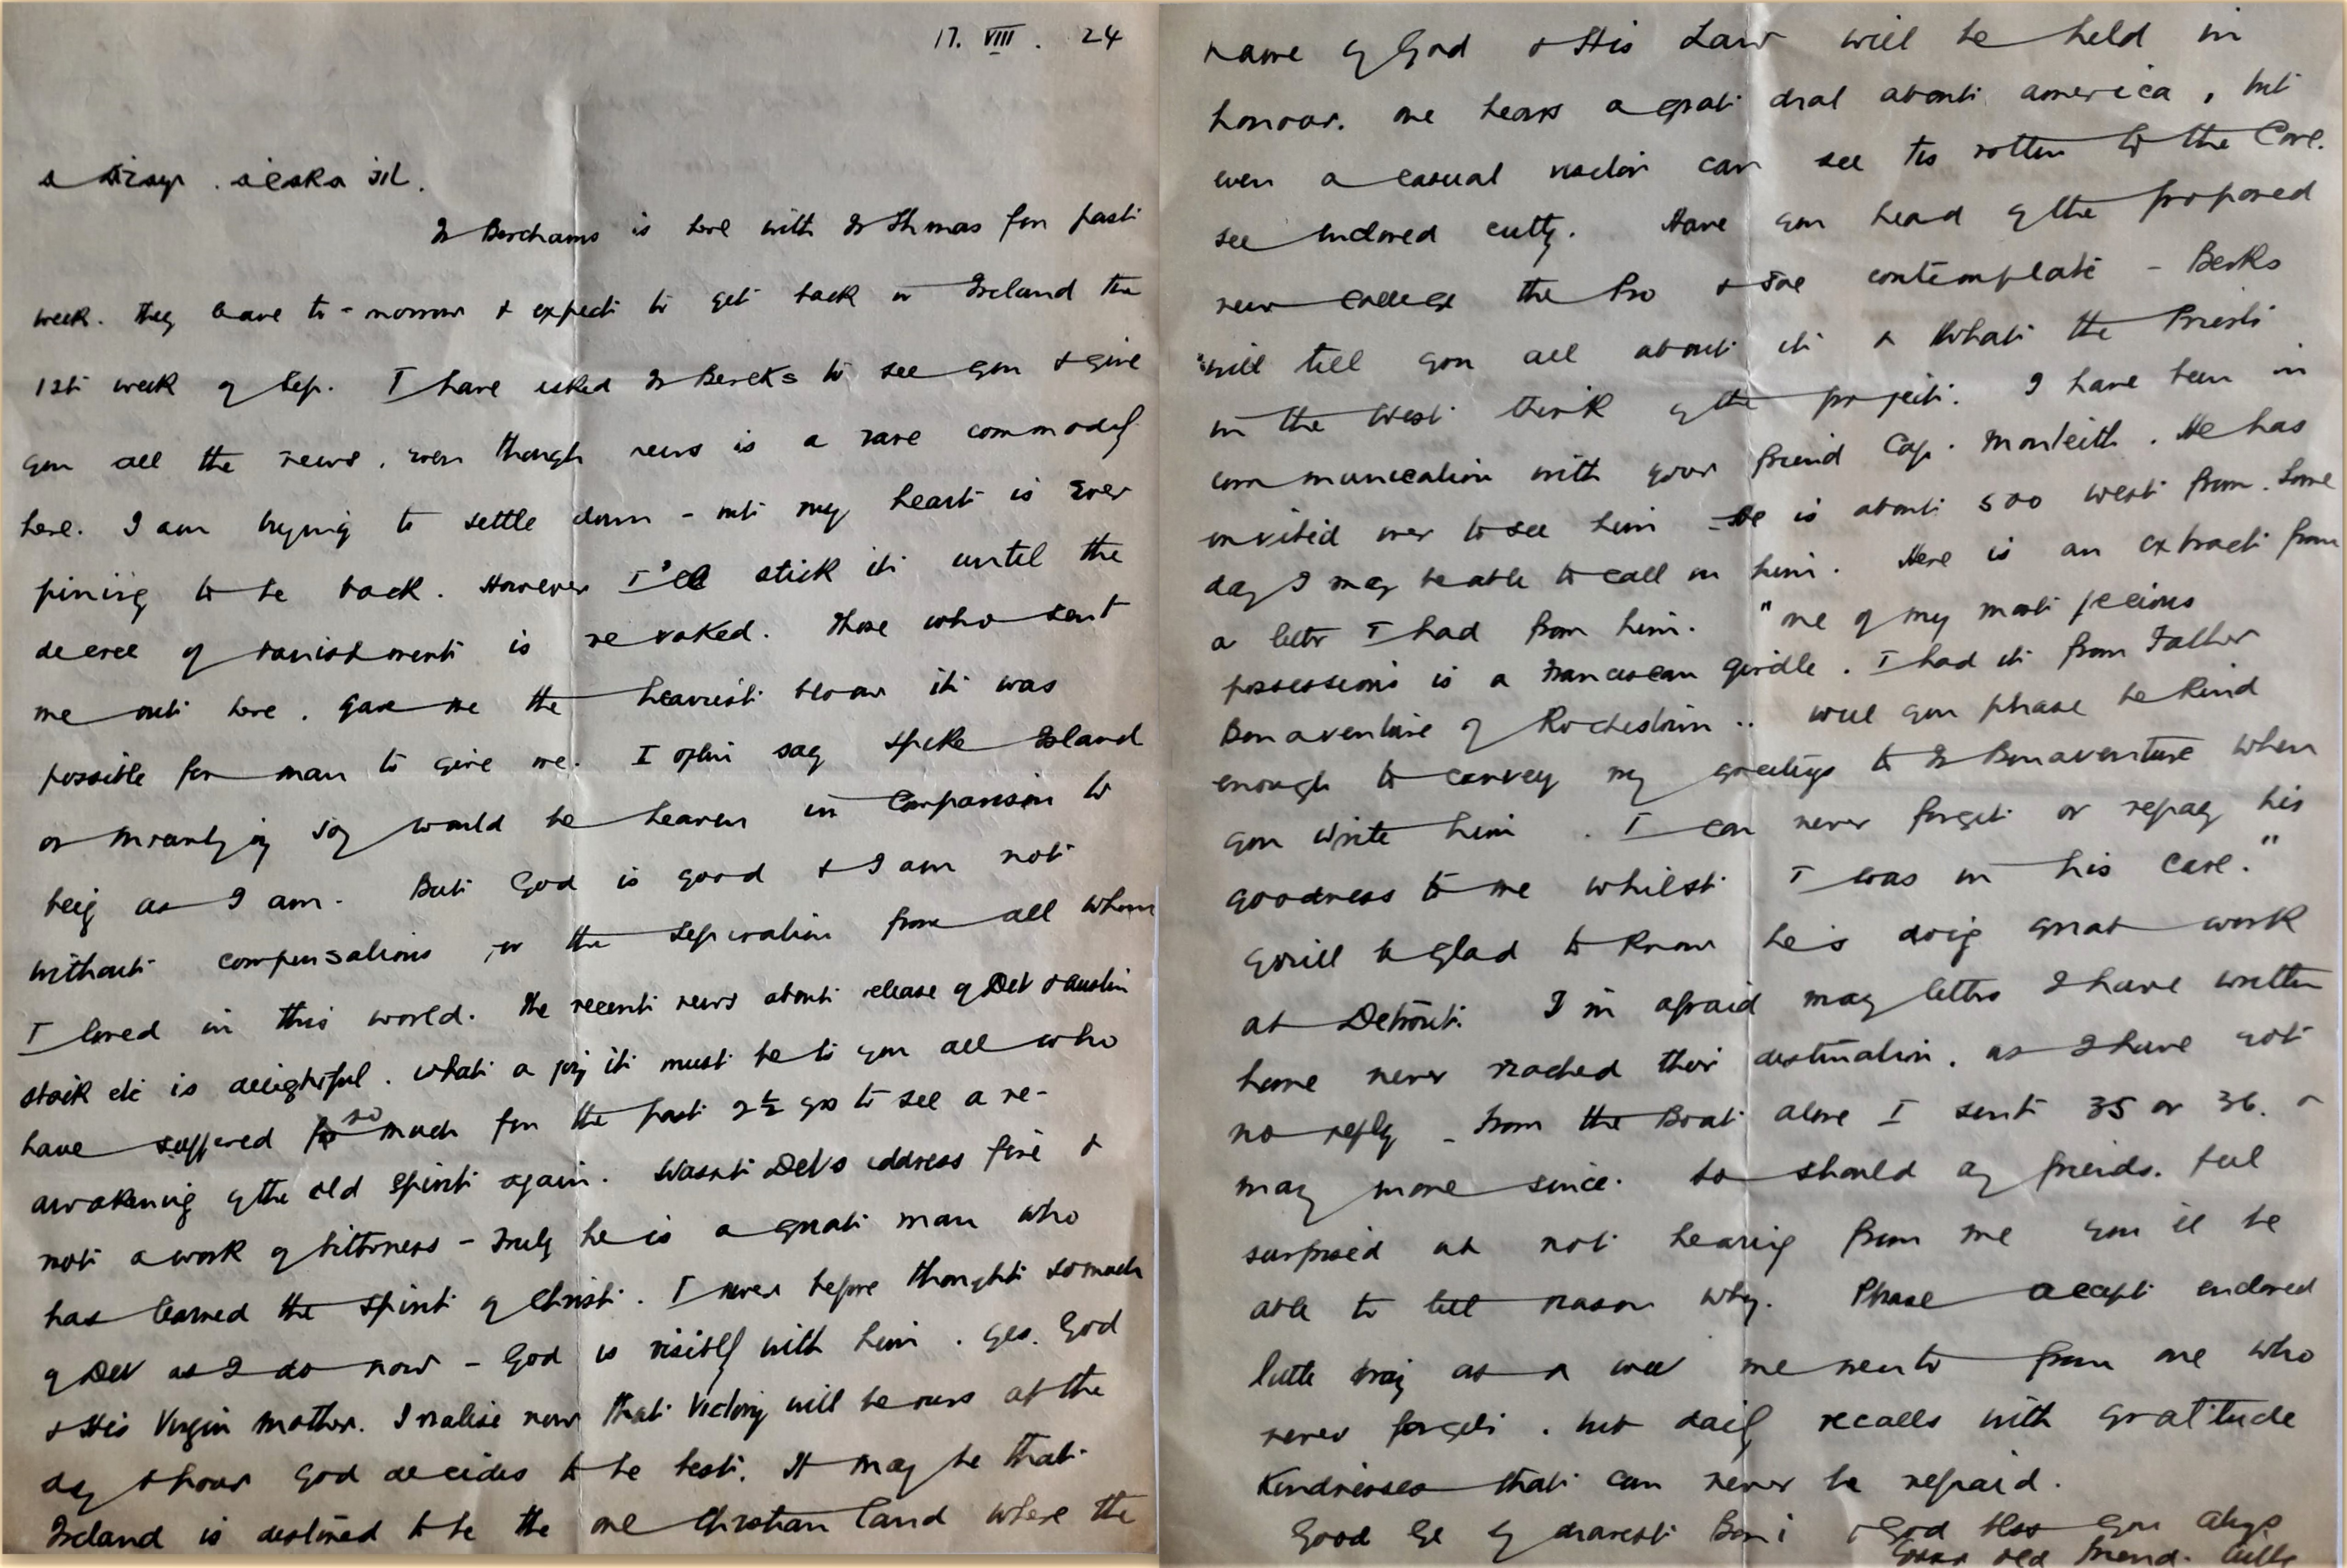 17. VIII. 24
a
Fr Berchans is here with Fr Thomas for past
week. They leave to-morrow & expect to get back in Ireland the
1st week of Sep. I have asked Fr Bercks to see you & give
you all the news, even though news is a rare commodity
here. I am trying to settle down - but my heart is ever
pining to be back. However I'll stick it until the
decree of banishment is revoked. Those who sent
me out here, gave me the heaviest blow it was
possible for man to give me. I often say Spike Island
or Mountjoy Joy would be heaven in comparison to
being as I am. But God is good & I am not
without compensations for the separation from all whom
I loved in this world. The recent news about release of Dev & Austin
Stack etc is delightful. What a joy it must be to you all who
have suffered so much for the past 2½ yrs to see a re-
awakening of the old spirit again. Wasn't Dev's address fine &
not a work of bitterness - Truly he is a great man who
has learned the spirit of Christ. I never before thought so much
of Dev as I do now - God is visibly with him. Yes. God
& His Virgin Mother. I realise now that Victory will be ours at the
day & hour God decides to be best. It may be that
Ireland is destined to be the one Christian land where the
name of God & His Law will be held in
honour. One hears a great deal about America, but
even a casual visitor can see tis rotten to the Core.
see enclosed cuttg. Have you head of the proposed
new College the Pro & Joe contemplate - Berks
will tell you all about it & What the Priests
in the West think of the project. I have been in
communication with your friend Cap. Monteith. He has
invited me to see him - He is about 500 west from. Some
day I may be able to call on him. Here is an extract from
a letter I had from him. "One of my most precious
possessions is a Franciscan girdle. I had it from Father
Bonaventure of Rochestown .. will you please be kind
enough to convey my greetings to Fr Bonaventure when
you write him. I can never forget or repay his
goodness to me whilst I was in his care."
You'll be glad to know he's doing great work
at Detroit. I'm afraid many letters I have written
home never reached their destination, as I have got
no reply - From the Boat alone I sent 35 or 36. &
many more since. So should any friends. feel
surprised at not hearing from me you'll be
able to tell reason why. Please accept enclosed
little thing as a wee memento from one who
never forgets, but daily recalls with gratitude
Kindnesses that can never be repaid.
Good bye dearest Bon & God bless you always
your old friend.